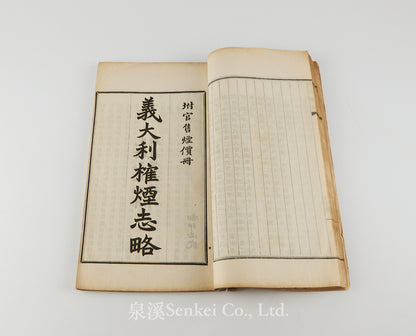 坿官售煙價冊
義大利榷煙志略
泉溪Senkei Co., Ltd.